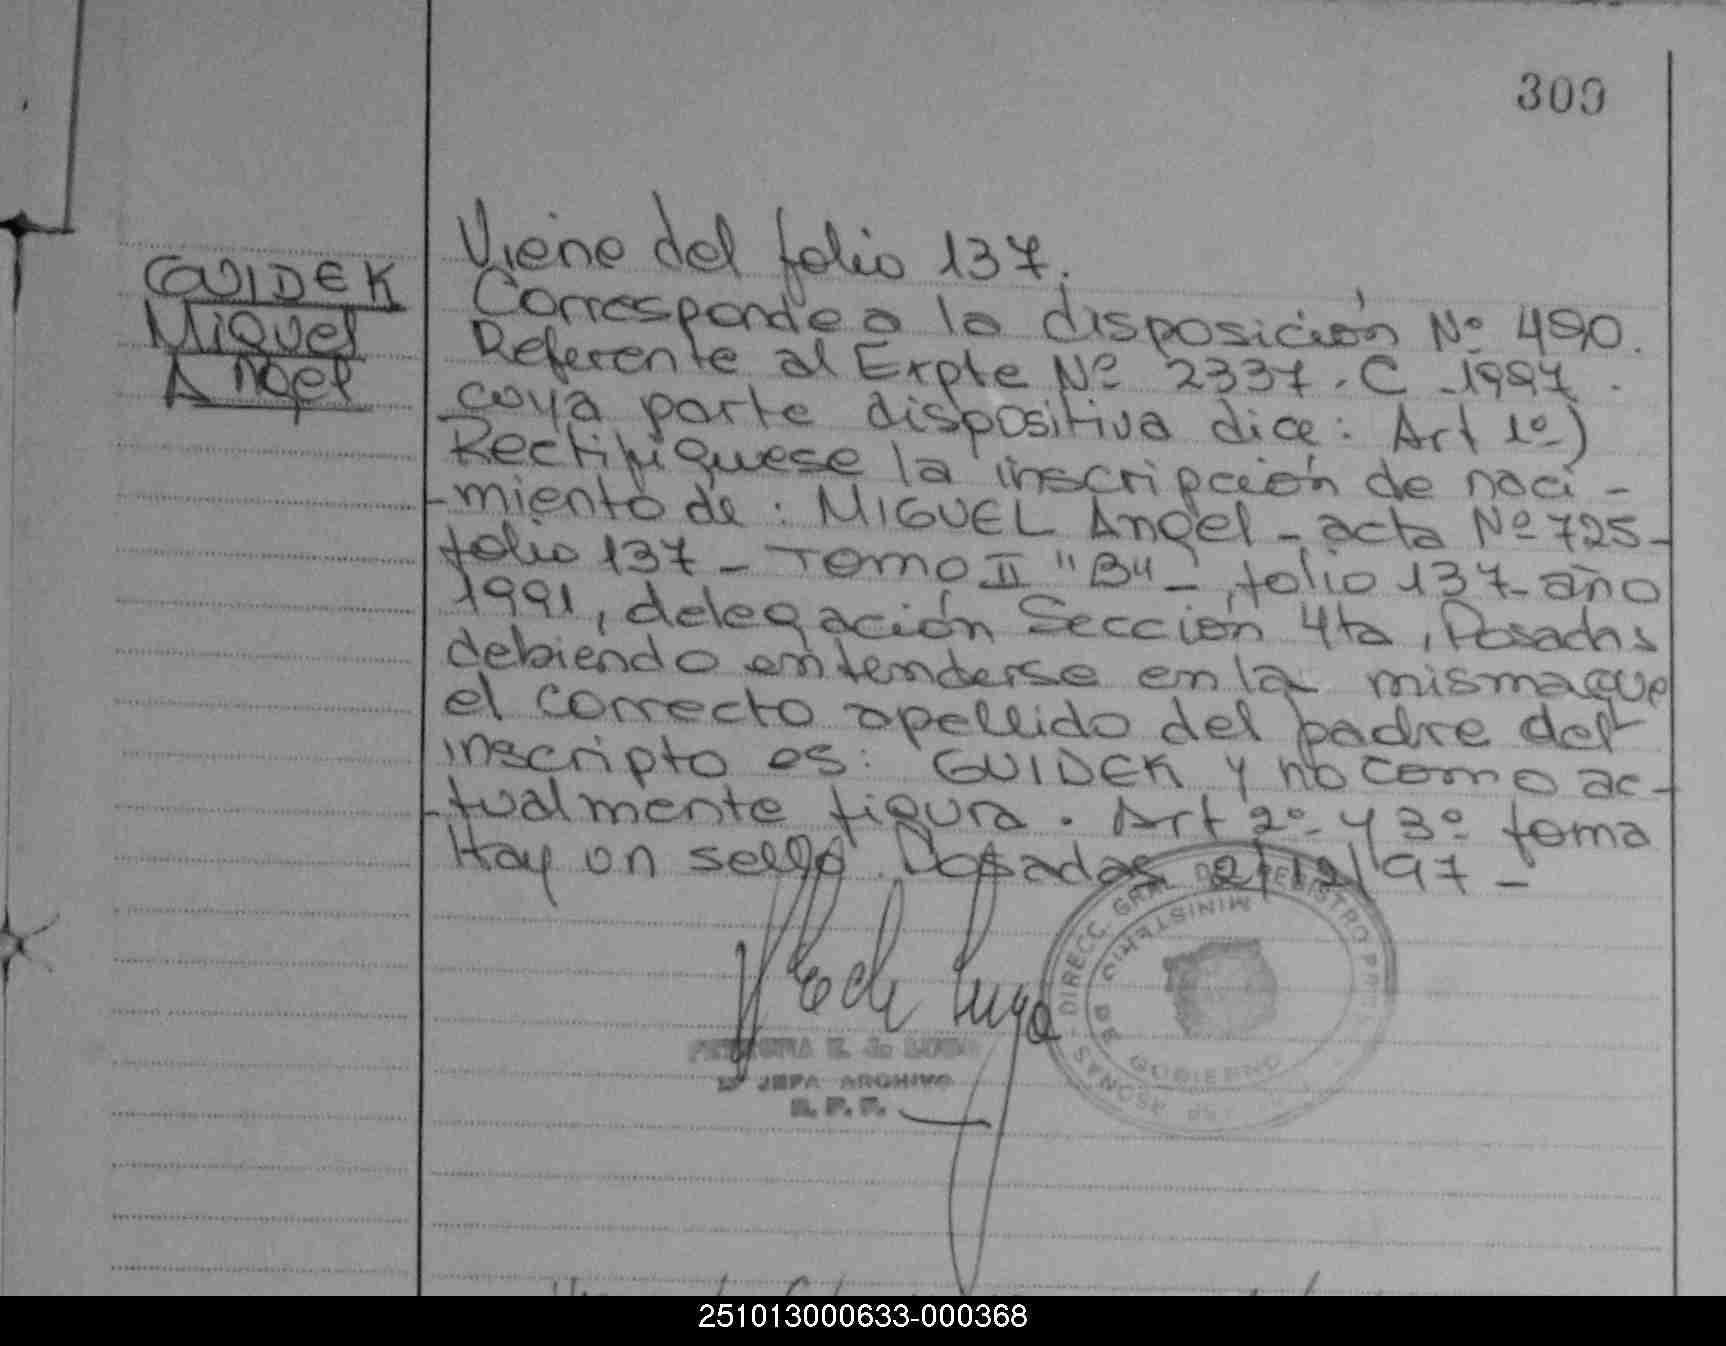 300
GUIDEK
Miguel
Angel
Viene del folio 137.
Corresponde a la disposición Nº 490.
Referente al Expte Nº 2337. C -1997.
cuya parte dispositiva dice: Art 1º)
Rectifíquese la inscripción de naci-
-miento de: MIGUEL Angel - acta Nº 725-
folio 137 - Tomo II "B" - folio 137 - año
1991, delegación Sección 4ta, Posadas
debiendo entenderse en la misma que
el correcto apellido del padre del
inscripto es: GUIDEK y no como ac-
-tualmente figura. Art 2º y 3º forma
Hay un sello. Posadas 2/12/97 -
DIRECC. GRAL DE REGISTRO
MINISTERIO DE GOBIERNO
E. J. LUGO
JEFA ARCHIVO
251013000633-000368